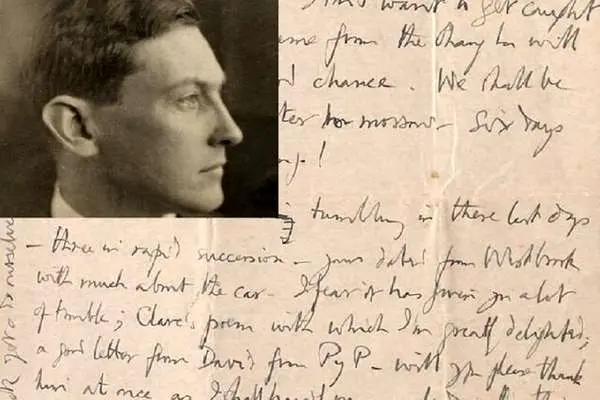 want to get caught
from the Chang La will
chance. We shall be
tomorrow – Six days
!
tumbling in these last days
– three in rapid succession – yours dated from Westbrook
with much about the car. I fear it has given you a lot
of trouble; Clare's poem with which I'm greatly delighted;
a good letter from David from PyP – will you please thank
him at once as I shall